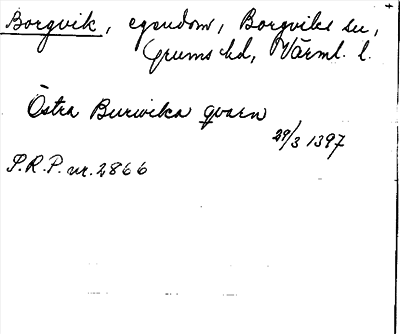 Borgvik, egendom, Borgviks sn,
Grums hd, Värml. l.
Östra Burwika qvarn
29/3 1397
S.R.P. nr. 2866